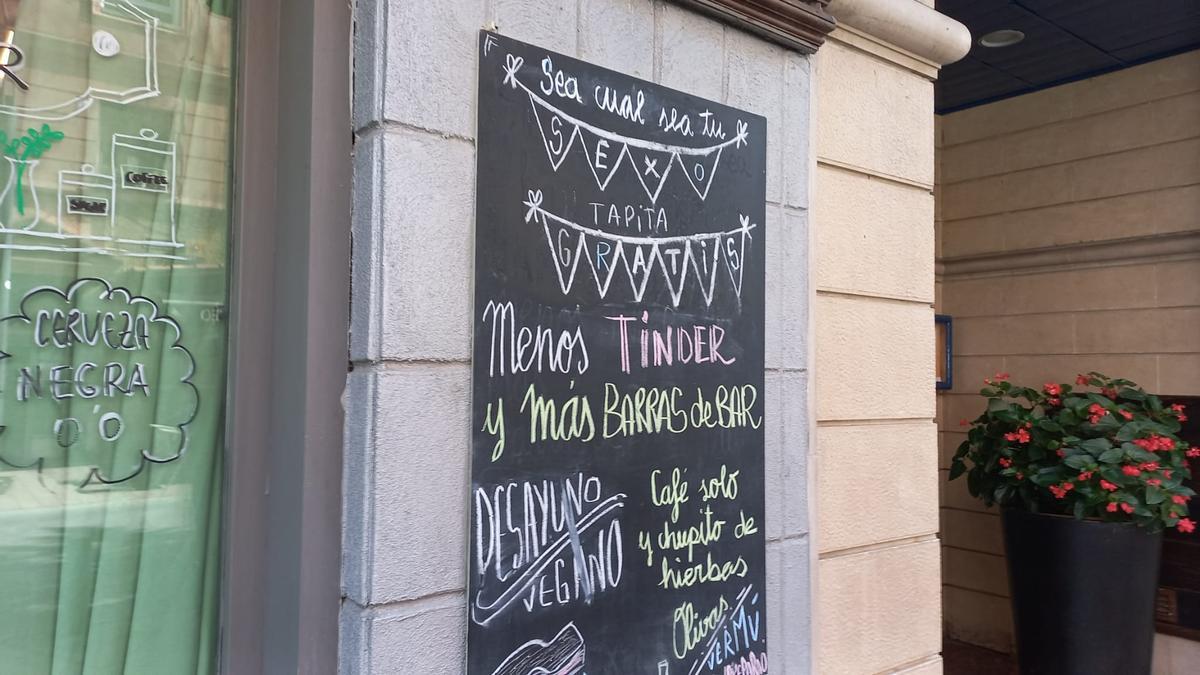 Sea cual sea tu
SEXO
TAPITA
GRATIS
Menos TINDER
y más BARRAS de BAR
DESAYUNO
VEGANO
Café solo
y chupito de
hierbas
Olivas
VERMÚ
CERVEZA
NEGRA